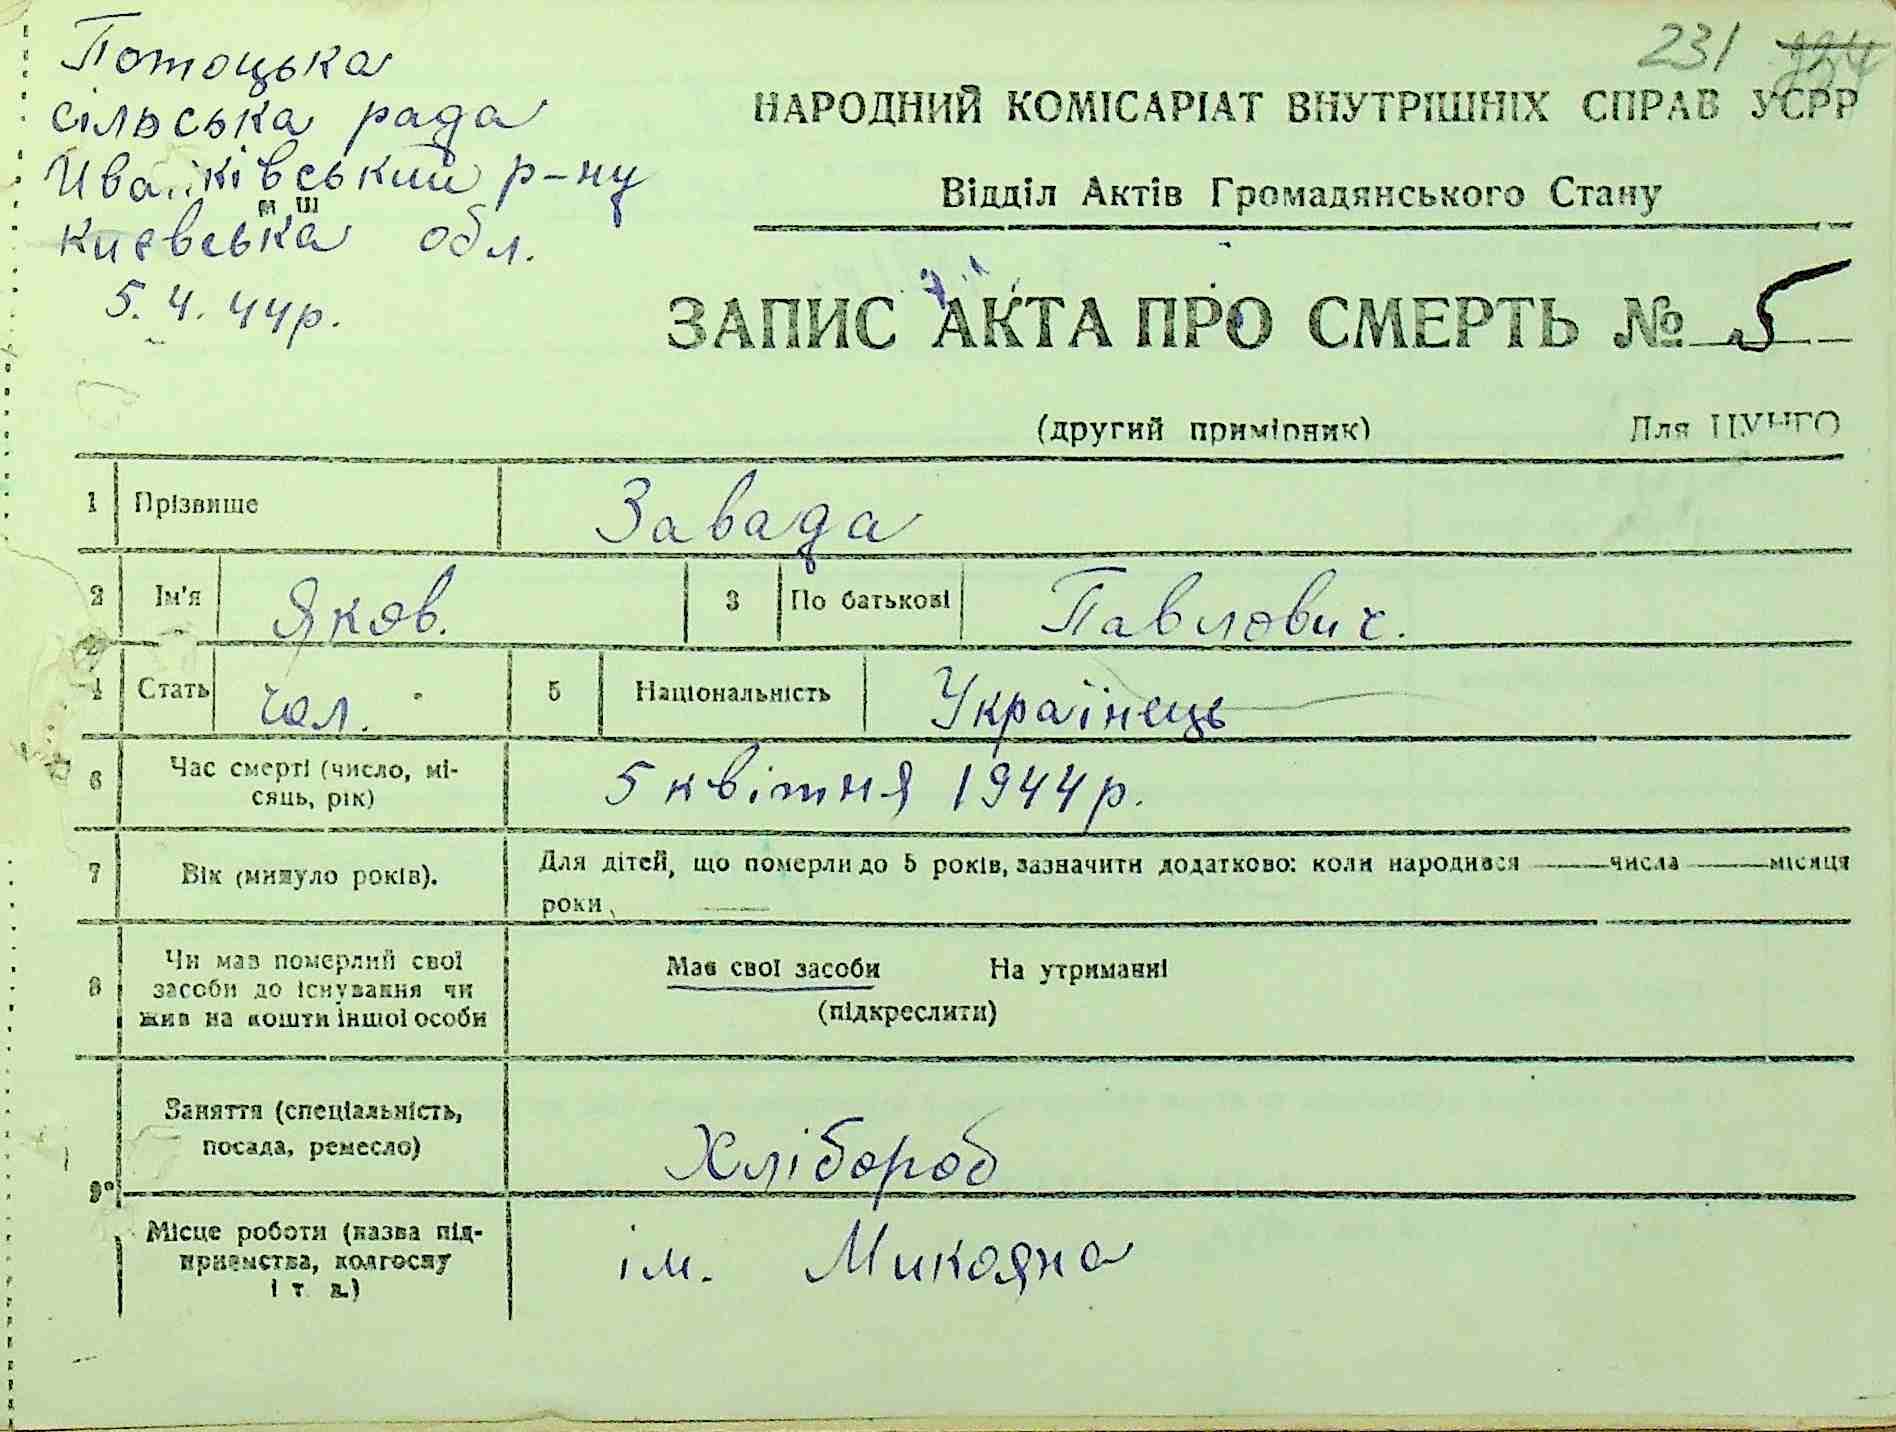 231 224
Потоцька
сільська рада
р-ну
Києвська обл.
5.4.44р.
НАРОДНИЙ КОМІСАРІАТ ВНУТРІШНІХ СПРАВ УСРР
Відділ Актів Громадянського Стану
ЗАПИС АКТА ПРО СМЕРТЬ № 5
(другий примірник) Для ЦУНГО
1 Прізвище Завада
2 Ім'я Яков. 3 По батькові Павлович.
4 Стать чол. 5 Національність Українець
6 Час смерті (число, мі-
сяць, рік) 5 квітня 1944р.
7 Вік (минуло років). Для дітей, що померли до 5 років, зазначити додатково: коли народився — числа — місяця
роки —
8 Чи мав померлий свої
засоби до існування чи
жив на кошти іншої особи
Мав свої засоби На утриманні
(підкреслити)
9 Заняття (спеціальність,
посада, ремесло) Хлібороб
Місце роботи (назва під-
приємства, колгоспу
і т. д.) ім. Микояна